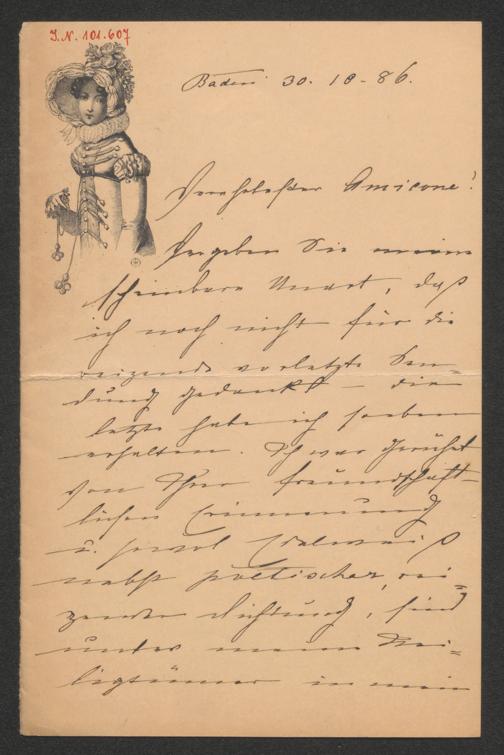 I.N. 101.607
Baden 30. 10 - 86.
Verehrtester Amicone!
Vergeben Sie meine
scheinbare Unart, daß
ich noch nicht für die
reizende vorletzte Sen=
dung gedankt – die
letzte habe ich soeben
erhalten. Ich war gerührt
von Ihrer freundschaft-
lichen Erinnerung
u. sowol Edelweiß
nebst poëtischer, rei=
zender Dichtung, sind
unter meine Hei=
ligtümer in mein